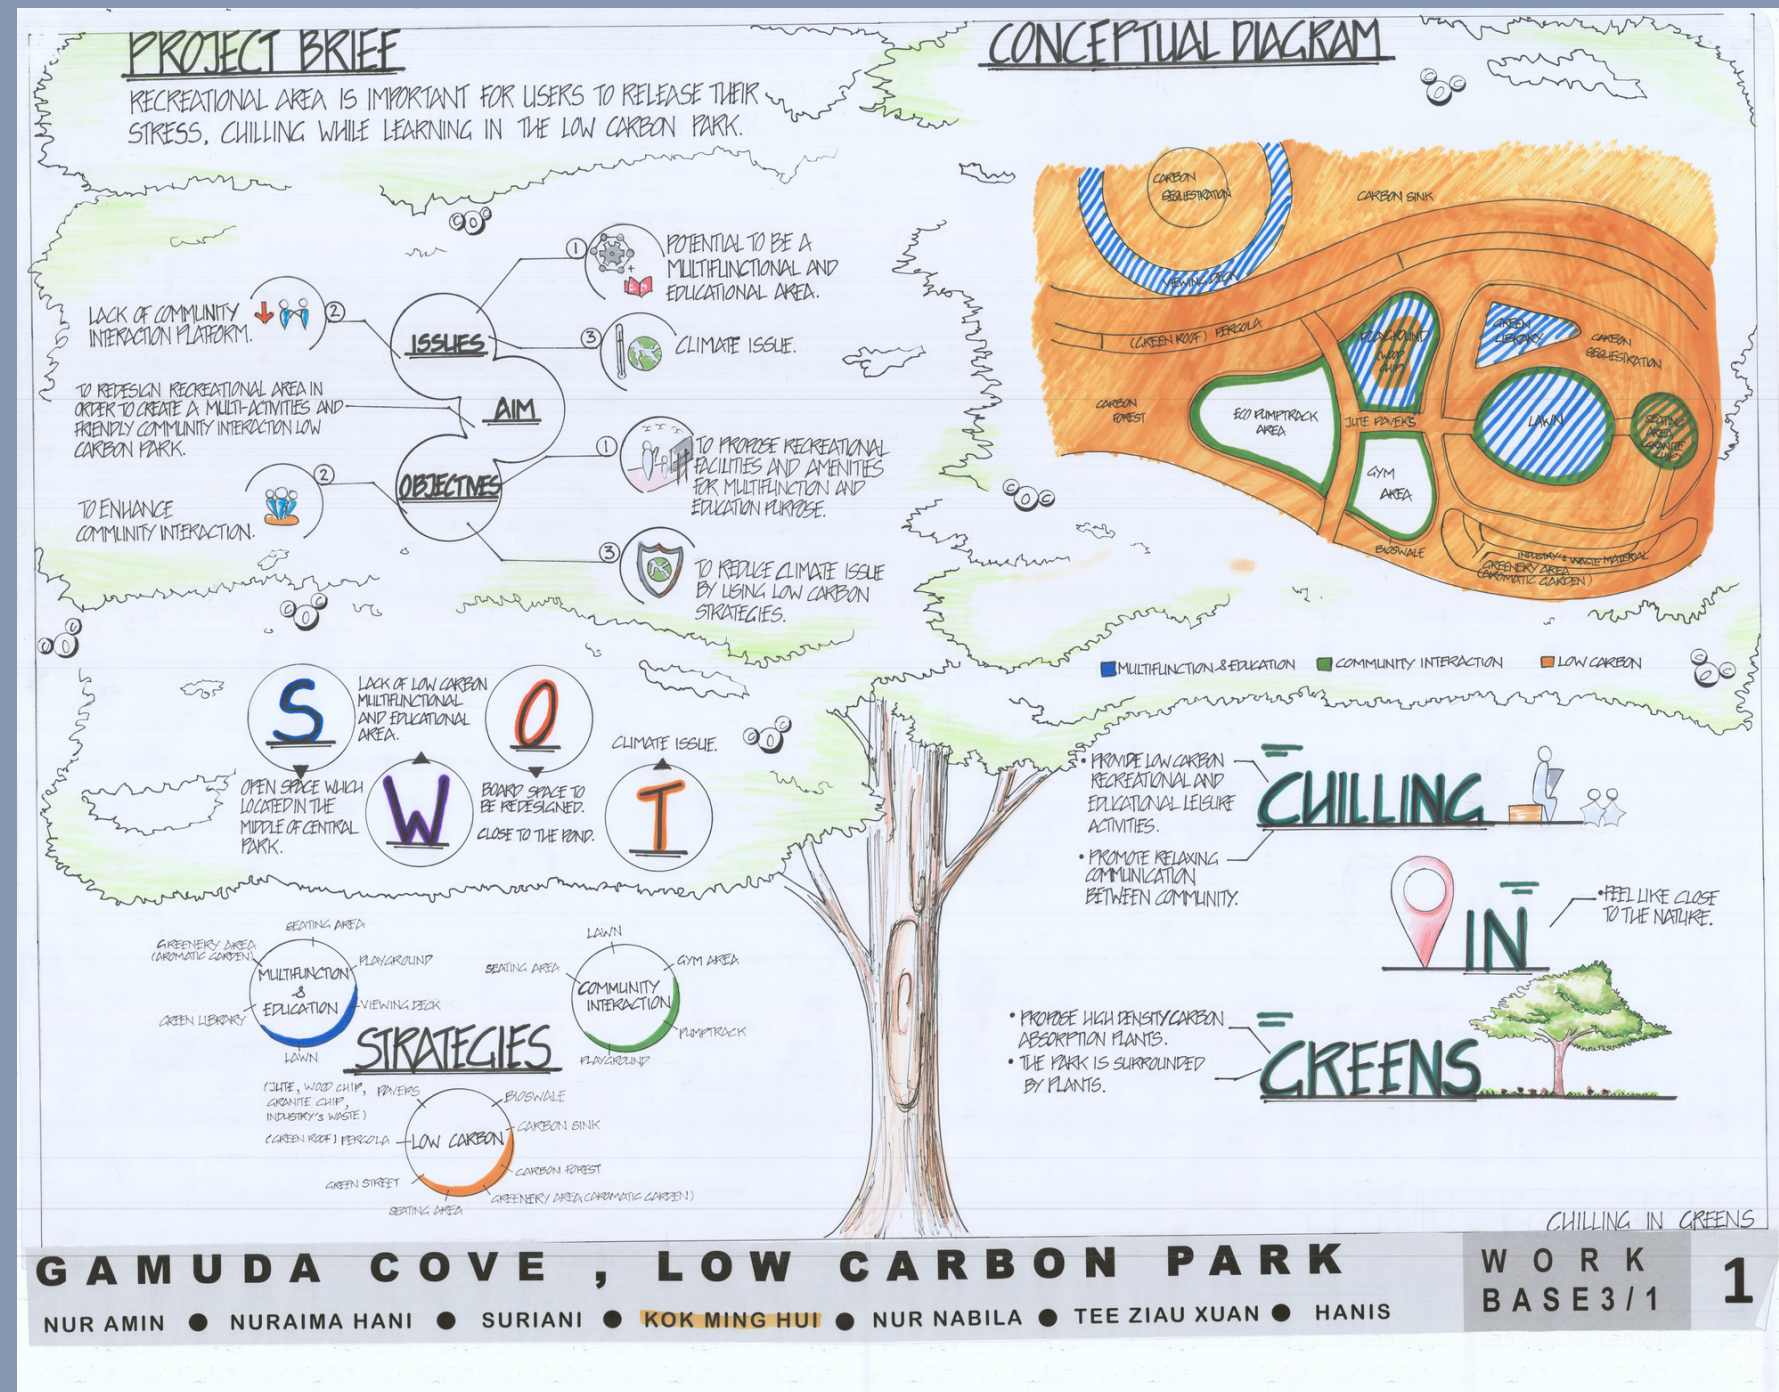 PROJECT BRIEF
RECREATIONAL AREA IS IMPORTANT FOR USERS TO RELEASE THEIR
STRESS, CHILLING WHILE LEARNING IN THE LOW CARBON PARK.
ISSUES
1
POTENTIAL TO BE A
MULTIFUNCTIONAL AND
EDUCATIONAL AREA.
2
LACK OF COMMUNITY
INTERACTION PLATFORM.
3
CLIMATE ISSUE.
AIM
TO REDESIGN RECREATIONAL AREA IN
ORDER TO CREATE A MULTI-ACTIVITIES AND
FRIENDLY COMMUNITY INTERACTION LOW
CARBON PARK.
OBJECTIVES
1
TO PROPOSE RECREATIONAL
FACILITIES AND AMENITIES
FOR MULTIFUNCTION AND
EDUCATION PURPOSE.
2
TO ENHANCE
COMMUNITY INTERACTION.
3
TO REDUCE CLIMATE ISSUE
BY USING LOW CARBON
STRATEGIES.
S
OPEN SPACE WHICH
LOCATED IN THE
MIDDLE OF CENTRAL
PARK.
W
LACK OF LOW CARBON
MULTIFUNCTIONAL
AND EDUCATIONAL
AREA.
O
BOARD SPACE TO
BE REDESIGNED.
CLOSE TO THE POND.
T
CLIMATE ISSUE.
STRATEGIES
MULTIFUNCTION
&
EDUCATION
SEATING AREA
GREENERY AREA
(AROMATIC GARDEN)
PLAYGROUND
VIEWING DECK
GREEN LIBRARY
LAWN
COMMUNITY
INTERACTION
LAWN
SEATING AREA
GYM AREA
PUMPTRACK
PLAYGROUND
LOW CARBON
(JUTE, WOOD CHIP, PAVERS
GRANITE CHIP,
INDUSTRY'S WASTE)
BIOSWALE
CARBON SINK
(GREEN ROOF) PERGOLA
CARBON FOREST
GREEN STREET
GREENERY AREA (AROMATIC GARDEN)
SEATING AREA
CONCEPTUAL DIAGRAM
CARBON
SEQUESTRATION
CARBON SINK
VIEWING DECK
(GREEN ROOF) PERGOLA
PLAYGROUND
(WOOD
CHIP)
GREEN
LIBRARY
CARBON
SEQUESTRATION
CARBON
FOREST
ECO PUMPTRACK
AREA
JUTE PAVERS
LAWN
SEATING
AREA
GYM
AREA
BIOSWALE
INDUSTRY'S WASTE MATERIAL
GREENERY AREA
(AROMATIC GARDEN)
MULTIFUNCTION & EDUCATION
COMMUNITY INTERACTION
LOW CARBON
CHILLING
• PROVIDE LOW CARBON
RECREATIONAL AND
EDUCATIONAL LEISURE
ACTIVITIES.
• PROMOTE RELAXING
COMMUNICATION
BETWEEN COMMUNITY.
IN
• FEEL LIKE CLOSE
TO THE NATURE.
GREENS
• PROPOSE HIGH DENSITY CARBON
ABSORPTION PLANTS.
• THE PARK IS SURROUNDED
BY PLANTS.
CHILLING IN GREENS
GAMUDA COVE, LOW CARBON PARK
NUR AMIN ● NURAIMA HANI ● SURIANI ● KOK MING HUI ● NUR NABILA ● TEE ZIAU XUAN ● HANIS
WORK
BASE3/1
1